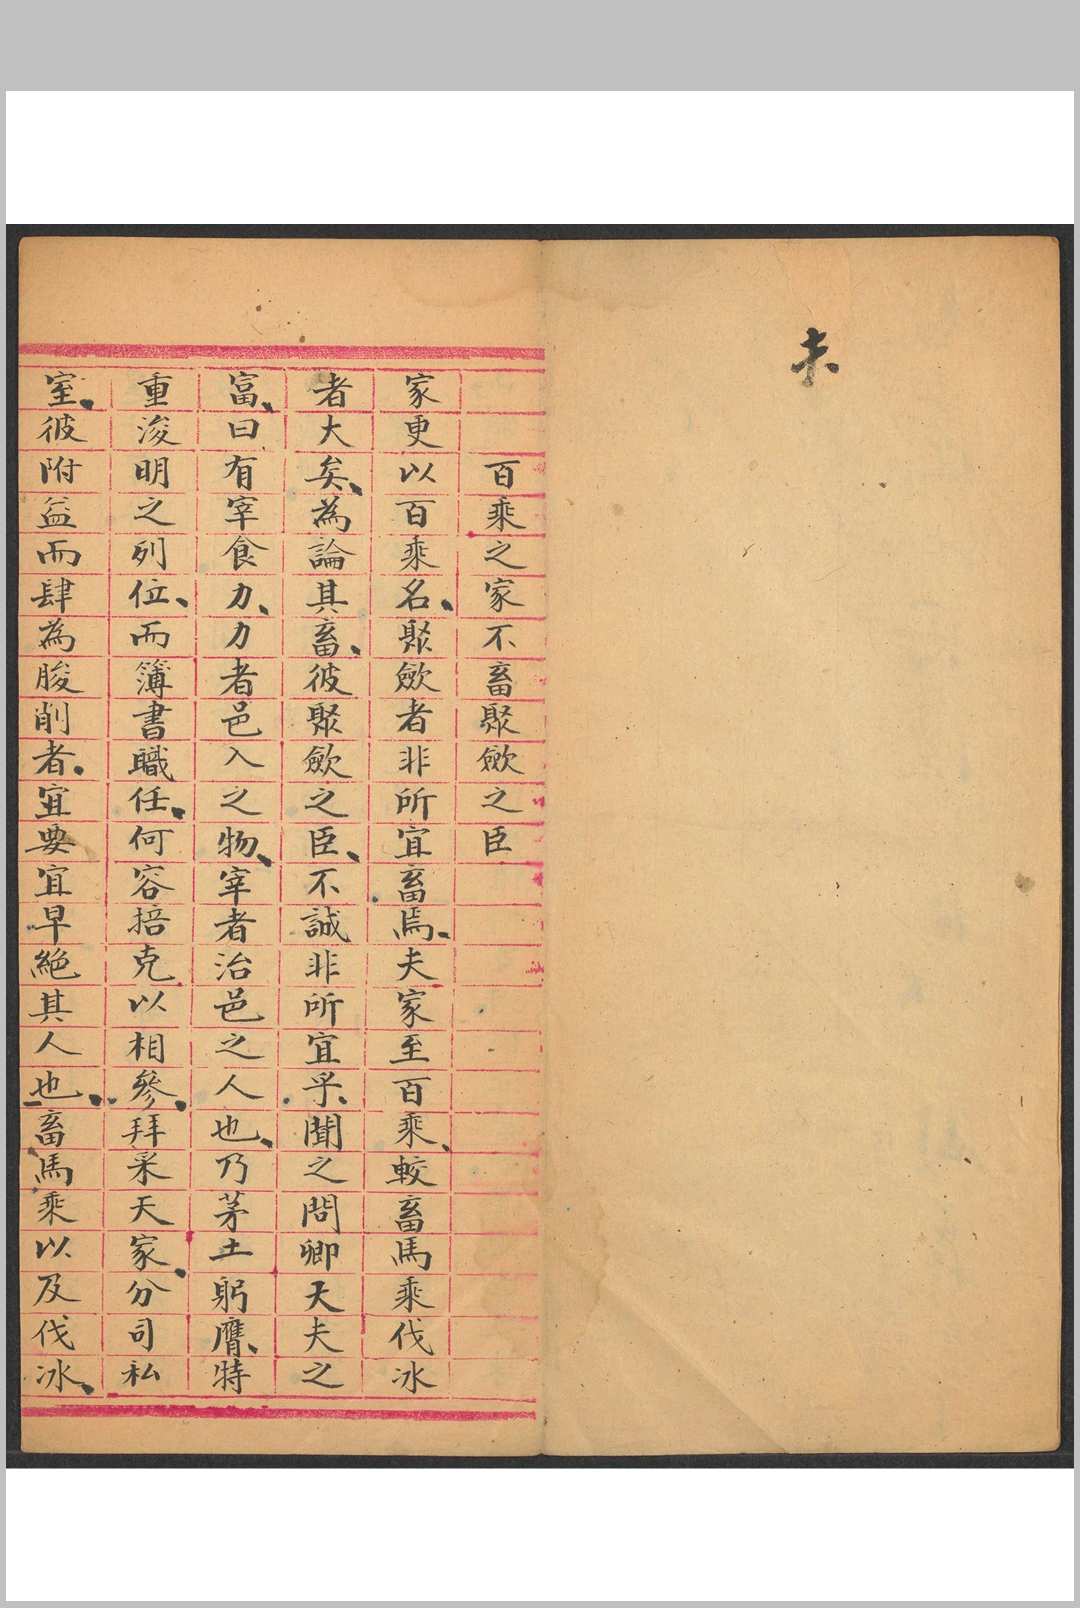 未
百乘之家不畜聚歛之臣
家更以百乘名聚歛者非所宜畜焉夫家至百乘較畜馬乘伐冰
者大矣為論其畜彼聚歛之臣不誠非所宜乎聞之問卿大夫之
富曰有宰食力力者邑入之物宰者治邑之人也乃茅土躬膺特
重浚明之列位而簿書職任何容掊克以相參拜采天家分司私
室彼附益而肆為朘削者宜要宜早絶其人也畜馬乘以及伐冰